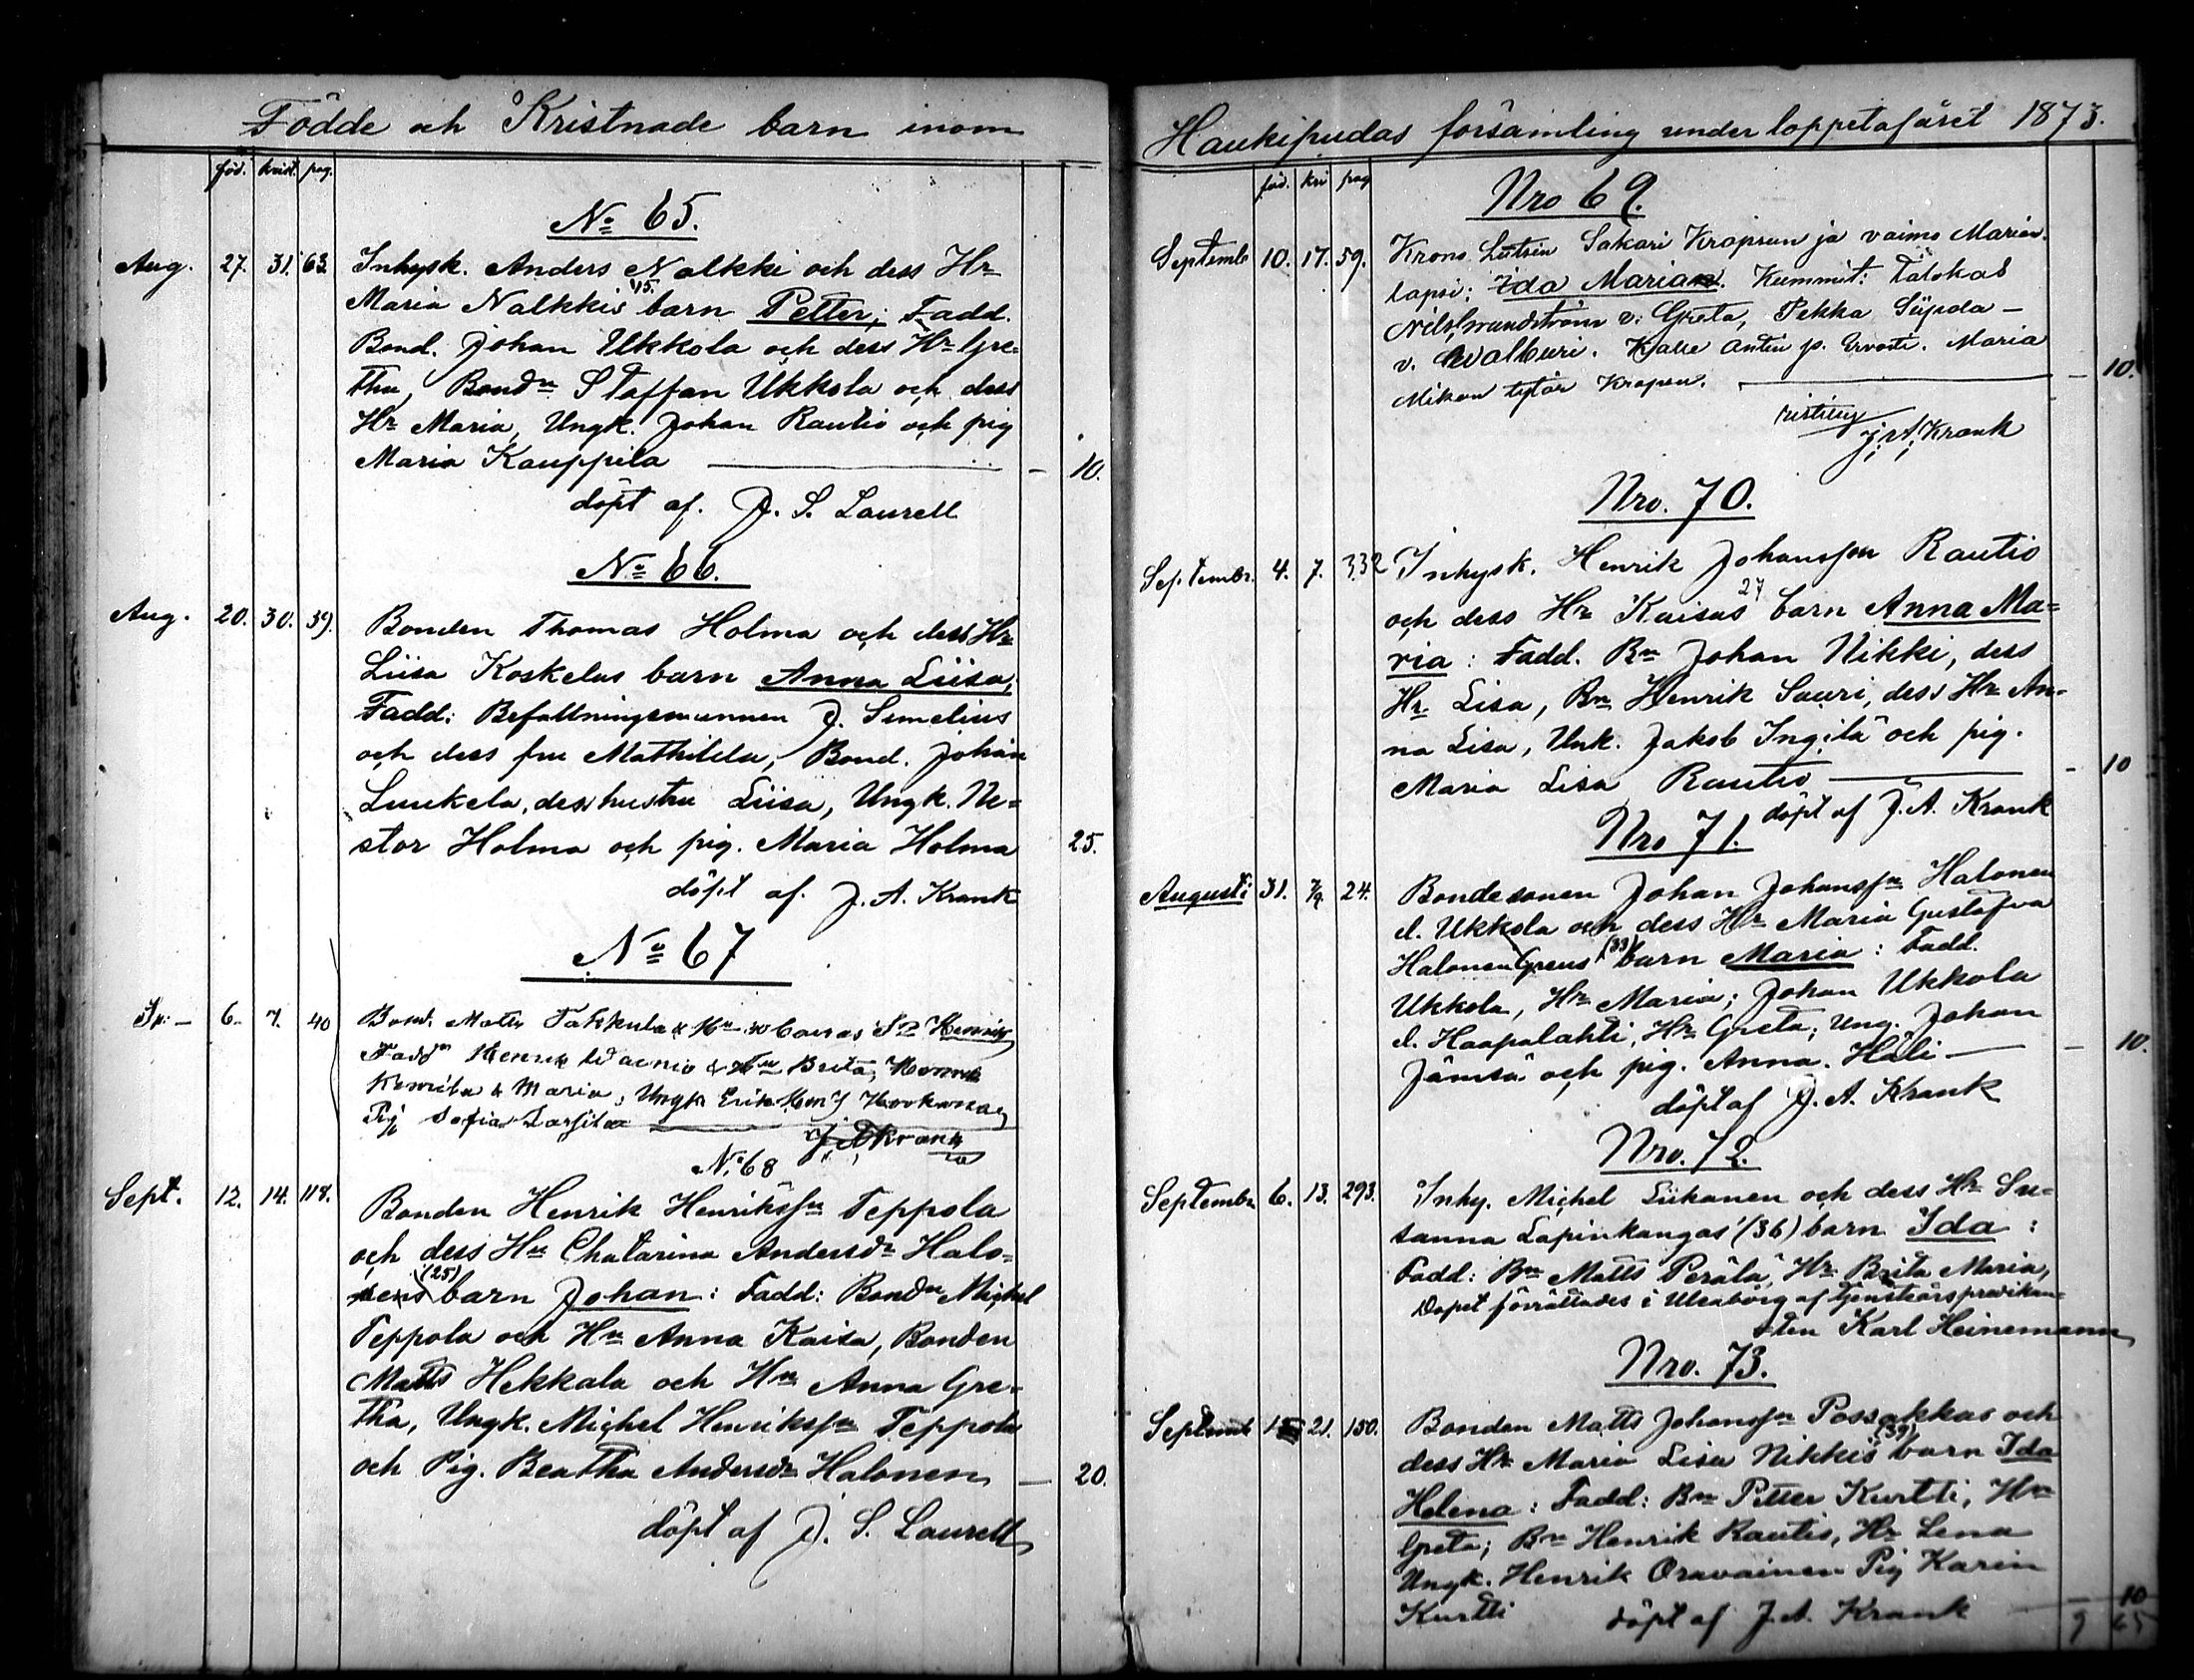 Födde och Kristnade barn inom
föd. krist. pag.
No 65.
Aug. 27. 31. 63. Inhysk. Anders Nalkki och dess Hu
Maria Nalkkis 45. barn Petter; Fadd.
Bond. Johan Ukkola och dess Hu Gre=
tha, Bondn Staffan Ukkola och dess
Hu Maria, Ungk. Johan Rautio och pig
Maria Kauppila — 10.
döpt af. J. S. Laurell
No 66.
Aug. 20. 30. 39. Bonden Thomas Holma och dess Hu
Liisa Koskelas barn Anna Liisa,
Fadd: Befallningsmannen J. Simelius
och dess fru Mathilda, Bond. Johan
Luukela, dess hustru Liisa, Ungk. Ne=
stor Holma och pig. Maria Holma 25.
döpt af. J. A. Krank
No 67
Sp. — 6. 7. 40 Bond. Matts Takkula & Hu Henrik
Fadd Henrik & Hu Brita, Henrik
& Maria, Ungk Erik
Pig Sofia —
J A Krank
No 68
Sept. 12. 14. 118. Bonden Henrik Henrikssn Teppola
och dess Hu Chatarina Andersdr Halo=
nens (25) barn Johan: Fadd: Bondn Michel
Teppola och Hu Anna Kaisa, Bonden
Matts Hekkala och Hu Anna Gre=
tha, Ungk. Michel Henrikssn Teppola
och Pig. Beatha Andersdr Halonen — 20.
döpt af J. S. Laurell
Haukipudas församling under loppet af året 1873.
föd. kri pag
Nro 69.
Septemb 10. 17. 59. Krono Lutsin Sakari Kropsun ja vaimo Marian
lapsi: Ida Maria. Kummit: Talokas
Nils v: Greta, Pekka Siipola —
v. Walburi. Kalle Antin p. Ervasti. Maria
Mikon tytär Kropsu. — 10.
ristinyt
J. A. Krank
Nro. 70.
Septembr. 4. 7. 332 Inhysk. Henrik Johansson Rautio
och dess Hu Kaisas 27 barn Anna Ma=
ria: Fadd. Bn Johan Nikki, dess
Hu Lisa, Bn Henrik Sauri, dess Hu An-
na Lisa, Unk. Jakob Ingilä och pig.
Maria Lisa Rautio — 10
döpt af J. A. Krank
Nro 71.
Augusti 31. 7/9 24. Bondesonen Johan Johanssn Halonen
l. Ukkola och dess Hu Maria Gustafva
Halonen (33) barn Maria: Fadd.
Ukkola, Hu Maria; Johan Ukkola
l. Haapalahti, Hu Greta, Ung. Johan
Jämsä och pig. Anna Häli — 10.
döpt af J. A. Krank
Nro. 72.
Septembr 6. 13. 293. Inhy. Michel Liikanen och dess Hu Su=
sanna Lapinkangas' (36) barn Ida:
Fadd: Bn Matts Perälä, Hu Brita Maria,
Dopet förrättades i Uleåborg af tjenstårspredikan=
ten Karl Heinemann
Nro. 73.
Septemb 21. 150. Bonden Matts Johanssn Possakkas och
dess Hu Maria Lisa Nikkis (39) barn Ida
Helena: Fadd: Bn Petter Kurtti, Hu
Greta; Bn Henrik Rautio, Hu Lena
Ungk. Henrik Oravainen Pig Karin
Kurtti — 10
döpt af J. A. Krank
9 65